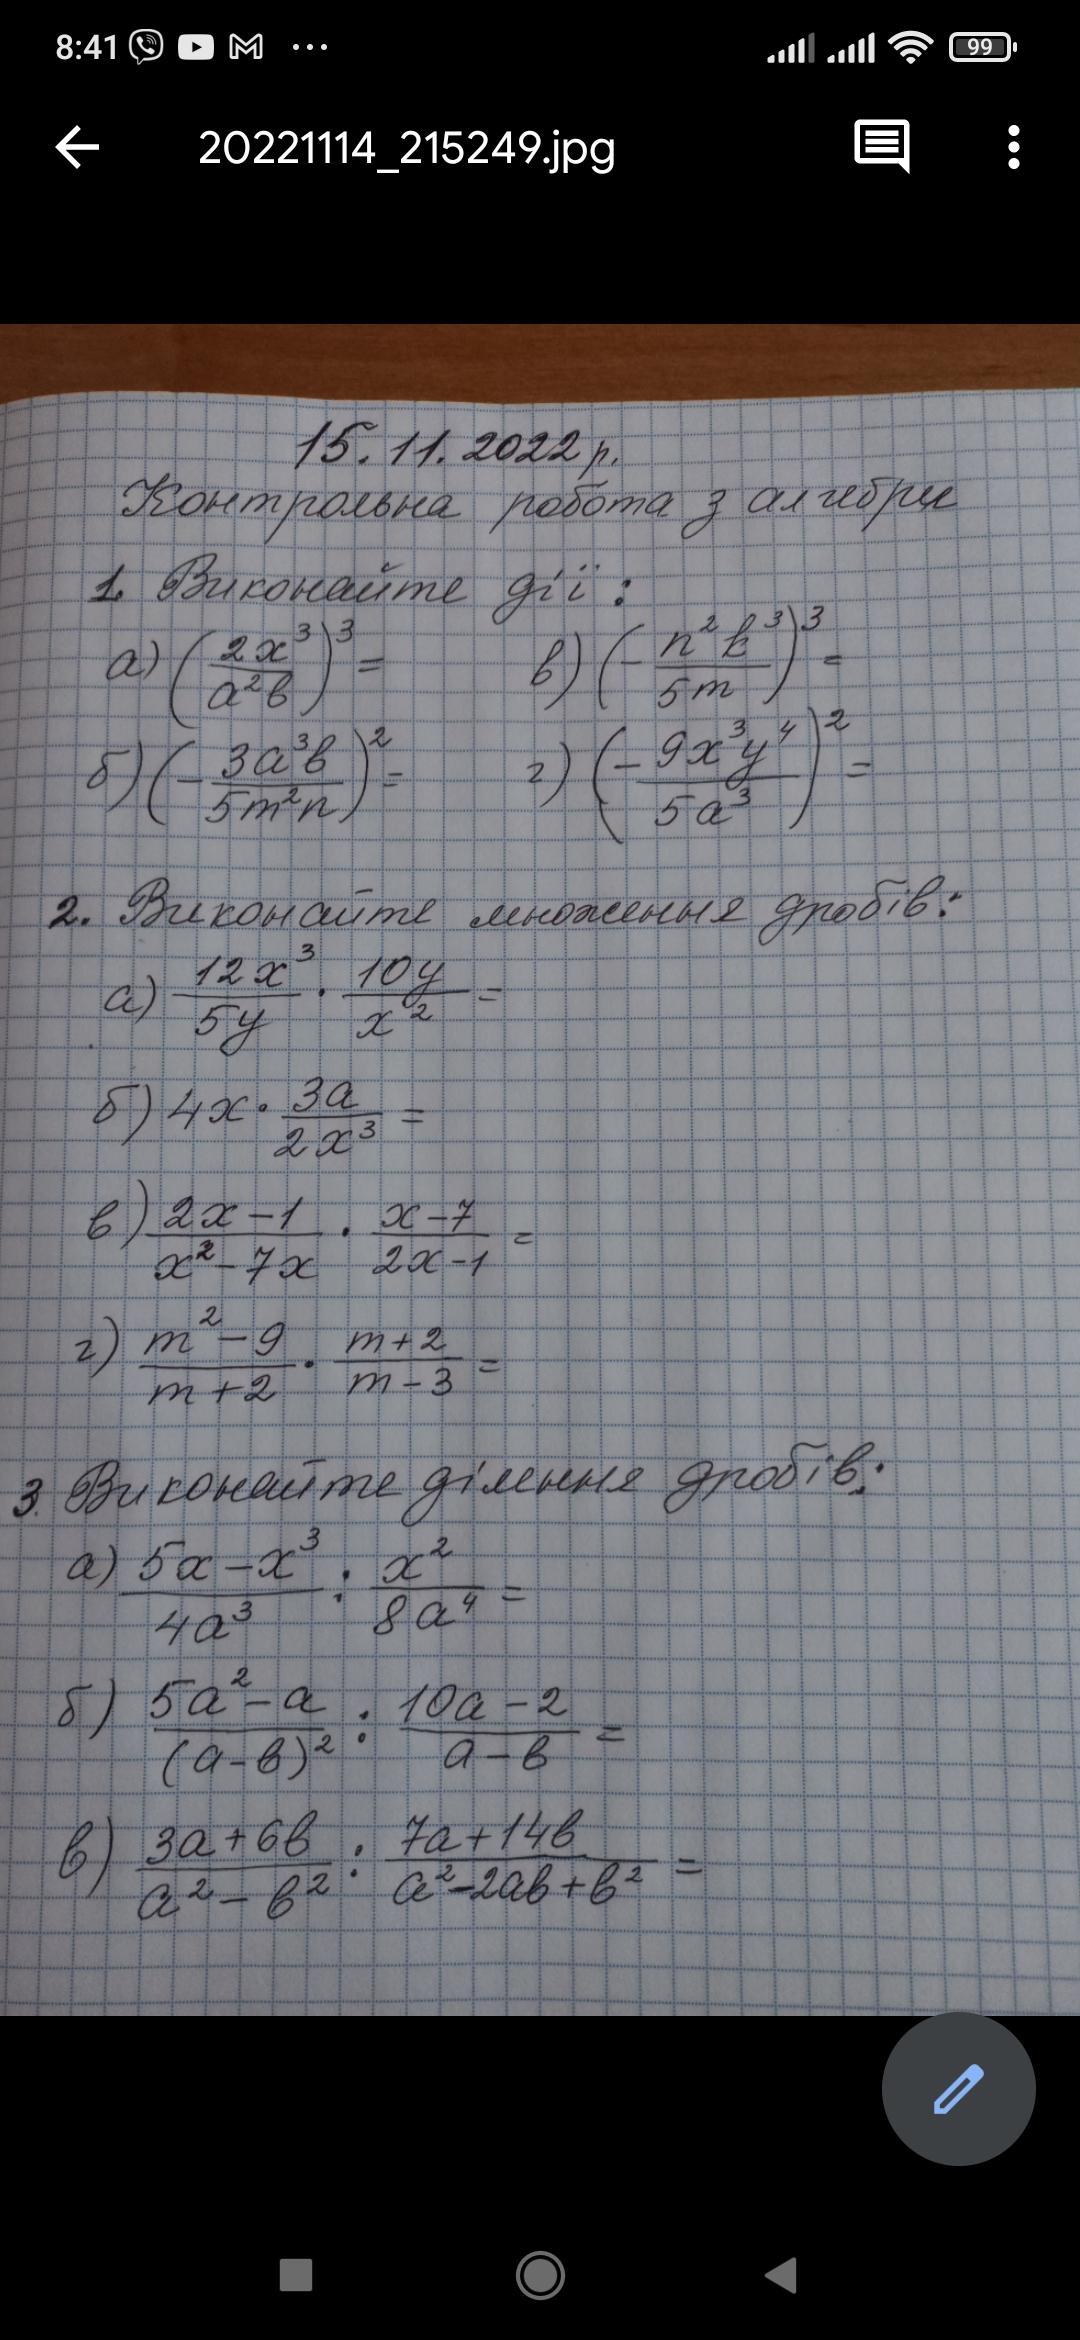 8:41 99
20221114_215249.jpg
15.11.2022 р.
Контрольна робота з алгебри
1. Виконайте дії:
а) (2x³/a²b)³ = в) (-n²k³/5m)³ =
б) (-3a³b/5m²n)² = г) (-9x³y⁴/5a³)² =
2. Виконайте множення дробів:
а) 12x³/5y · 10y/x² =
б) 4x · 3a/2x³ =
в) 2x-1/x²-7x · x-7/2x-1 =
г) m²-9/m+2 · m+2/m-3 =
3. Виконайте ділення дробів:
а) 5x-x³/4a³ : x²/8a⁴ =
б) 5a²-a/(a-b)² : 10a-2/a-b =
в) 3a+6b/a²-b² : 7a+14b/a²-2ab+b² =